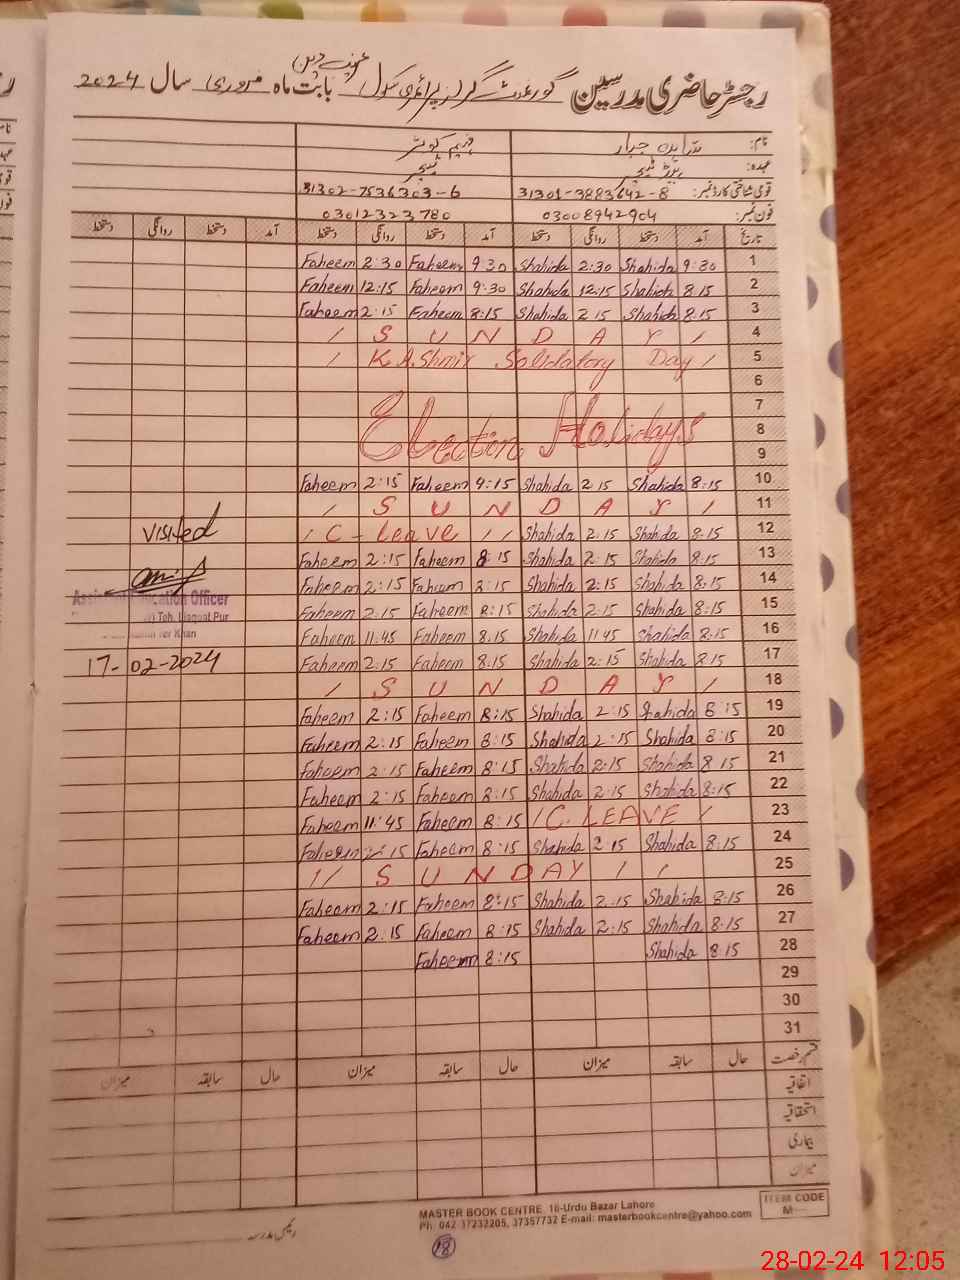 رجسٹر حاضری مدرسین گورنمنٹ گرلز پرائمری سکول بابت ماہ فروری سال 2024
نام:
عہدہ: ٹیچر
قومی شناختی کارڈ نمبر: 31301-3883642-8 31302-7536303-6
فون نمبر: 03008942904 03012323780
تاریخ آمد دستخط روانگی دستخط آمد دستخط روانگی دستخط آمد دستخط روانگی دستخط
Faheem 2:30 Faheem 9:30 Shahida 2:30 Shahida 9:30 1
Faheem 12:15 Faheem 9:30 Shahida 12:15 Shahida 8:15 2
Faheem 2:15 Faheem 8:15 Shahida 2 15 Shahida 8:15 3
/ S U N D A Y / 4
/ KAShmir Solidatory Day / 5
6
7
Election Holidays 8
9
Faheem 2:15 Faheem 9:15 Shahida 2 15 Shahida 8:15 10
/ S U N D A Y / 11
visited / C - Leave / / Shahida 2:15 Shahida 8:15 12
Faheem 2:15 Faheem 8:15 Shahida 2:15 Shahida 8:15 13
Faheem 2:15 Faheem 8:15 Shahida 2:15 Shahida 8:15 14
Assistant Education Officer
Faheem 2:15 Faheem 8:15 Shahida 2:15 Shahida 8:15 15
Teh. Liaquat Pur
Faheem 11:45 Faheem 8:15 Shahida 11 45 Shahida 8:15 16
Khan
17-02-2024 Faheem 2:15 Faheem 8:15 Shahida 2:15 Shahida 8:15 17
/ S U N D A Y / 18
Faheem 2:15 Faheem 8:15 Shahida 2:15 Shahida 8:15 19
Faheem 2:15 Faheem 8:15 Shahida 2:15 Shahida 8:15 20
Faheem 2:15 Faheem 8:15 Shahida 2:15 Shahida 8 15 21
Faheem 2:15 Faheem 8:15 Shahida 2:15 Shahida 8:15 22
Faheem 11:45 Faheem 8:15 / C. LEAVE / 23
Faheem 2:15 Faheem 8:15 Shahida 2:15 Shahida 8:15 24
/ / S U N D A Y / / 25
Faheem 2:15 Faheem 8:15 Shahida 2:15 Shahida 8:15 26
Faheem 2:15 Faheem 8:15 Shahida 2:15 Shahida 8:15 27
Faheem 8:15 Shahida 8:15 28
29
30
31
قسم رخصت حال سابقہ میزان حال سابقہ میزان حال سابقہ میزان
اتفاقیہ
استحقاقیہ
بیماری
میزان
ITEM CODE
M—
MASTER BOOK CENTRE 16-Urdu Bazar Lahore
Ph: 042 37232205, 37357732 E-mail: masterbookcentre@yahoo.com
رئیس مدرسہ
18
28-02-24 12:05